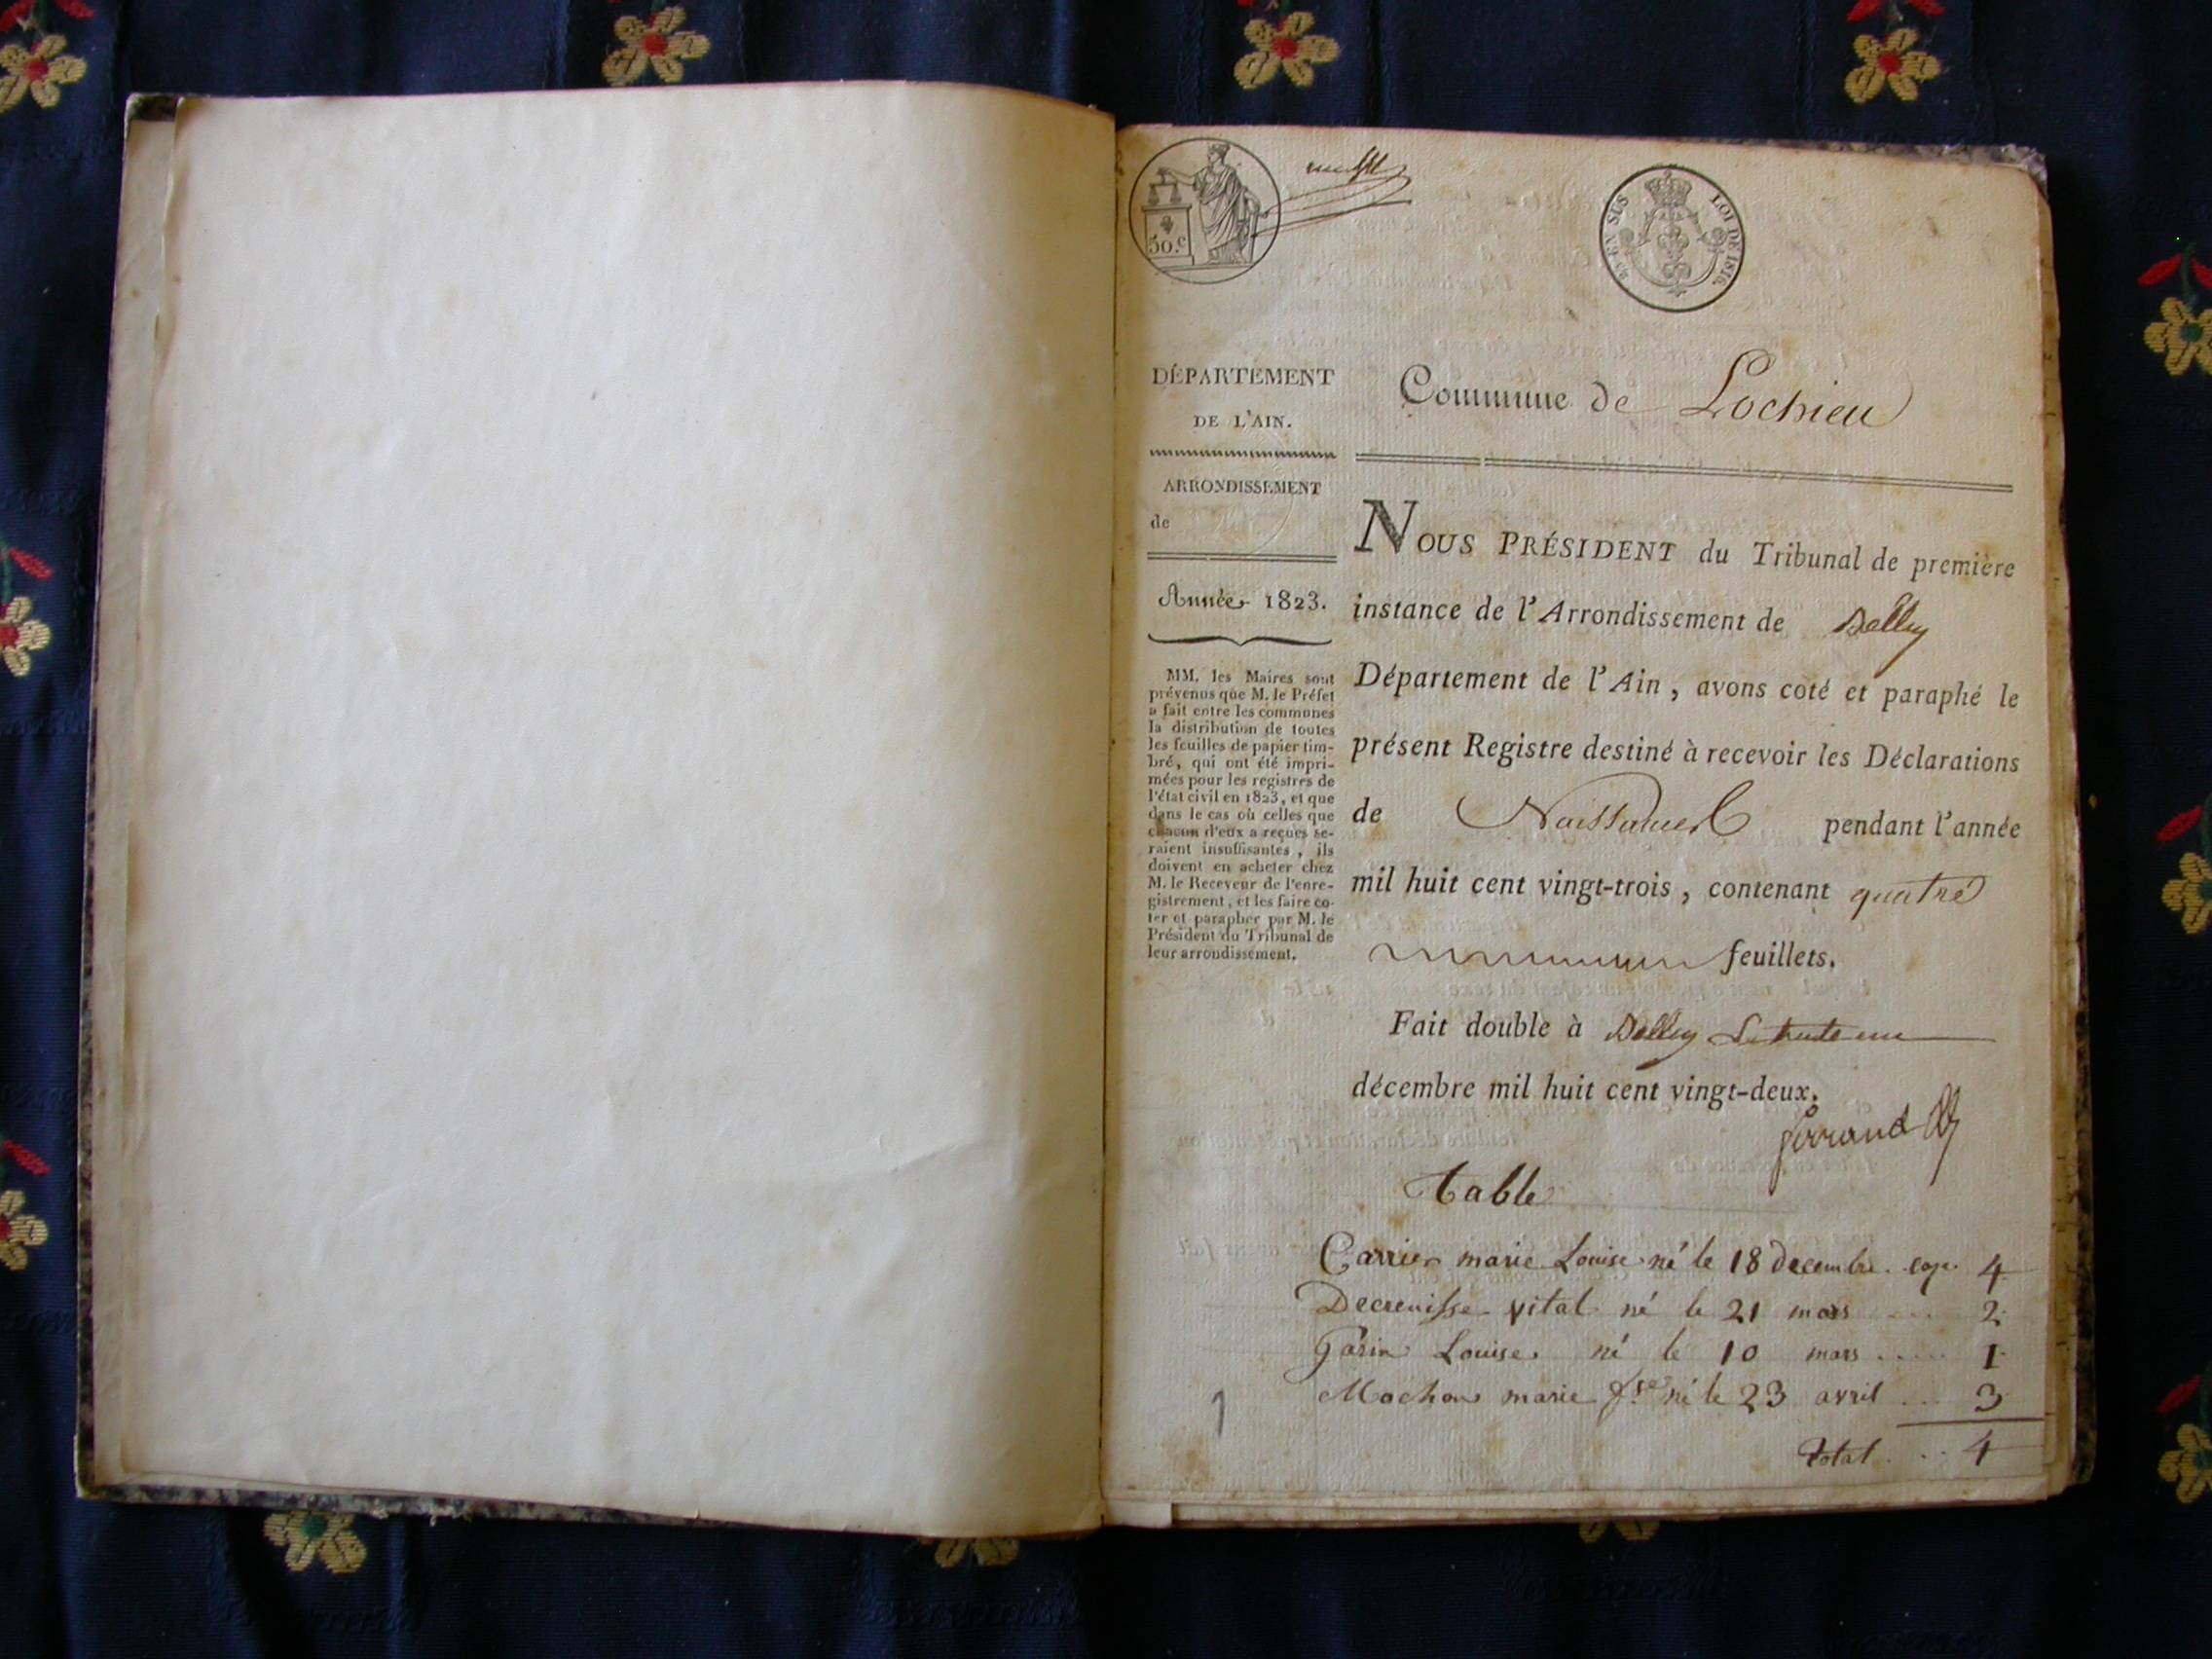 50.c
EN SUS LOI DE 1816.
DÉPARTEMENT
DE L'AIN.
ARRONDISSEMENT
de
Année 1823.
MM. les Maires sont
prévenus que M. le Préfet
a fait entre les communes
la distribution de toutes
les feuilles de papier tim-
bré, qui ont été impri-
mées pour les registres de
l'état civil en 1823, et que
dans le cas où celles que
chacun d'eux a reçues se-
raient insuffisantes, ils
doivent en acheter chez
M. le Receveur de l'enre-
gistrement, et les faire co-
ter et parapher par M. le
Président du Tribunal de
leur arrondissement.
Commune de Lochieu
NOUS PRÉSIDENT du Tribunal de première
instance de l'Arrondissement de Belley
Département de l'Ain, avons coté et paraphé le
présent Registre destiné à recevoir les Déclarations
de Naissances pendant l'année
mil huit cent vingt-trois, contenant quatre
feuillets.
Fait double à Belley Le trente un
décembre mil huit cent vingt-deux.
Table
Carrier marie Louise né le 18 decembre . cage. 4
Decrenisse vital né le 21 mars .... 2
Garin Louise né le 10 mars ..... 1
Mochon marie fse né le 23 avril ... 3
total ... 4
1